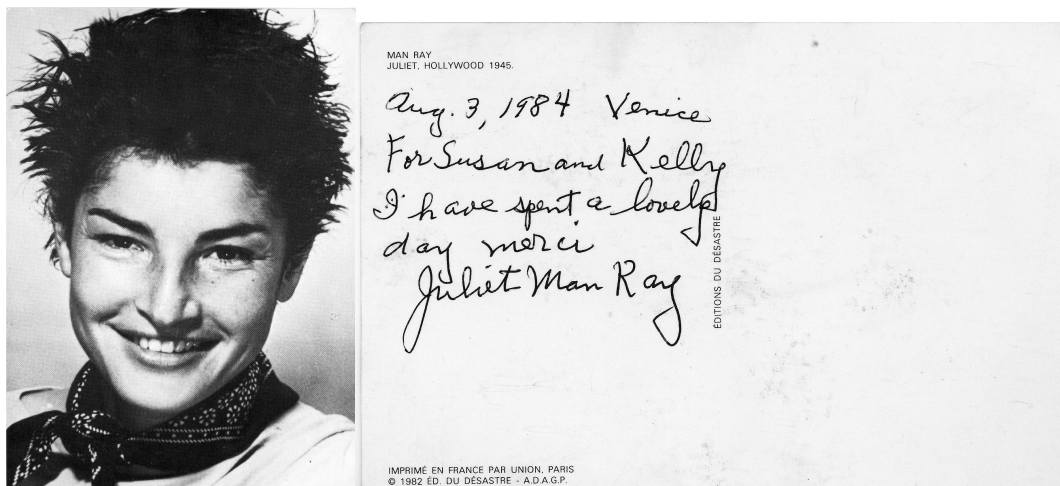 MAN RAY
JULIET, HOLLYWOOD 1945.
Aug. 3, 1984 Venice
For Susan and Kelly
I have spent a lovely
day merci
Juliet Man Ray
ÉDITIONS DU DÉSASTRE
IMPRIMÉ EN FRANCE PAR UNION, PARIS
© 1982 ÉD. DU DÉSASTRE - A.D.A.G.P.